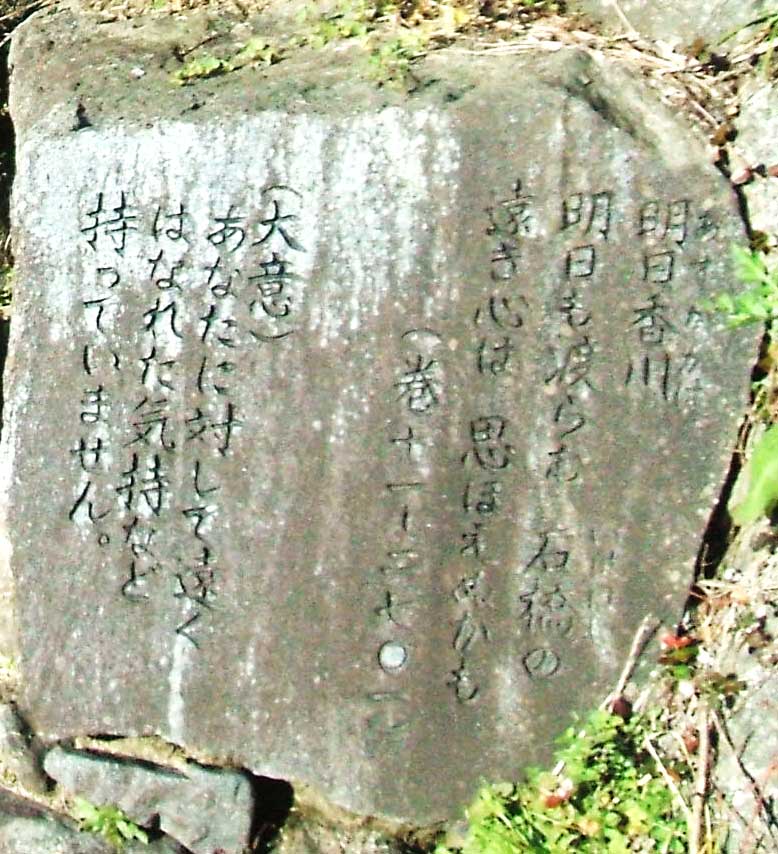 明日香川
明日も渡らむ 石橋の
遠き心は 思ほえぬかも
(巻十一–二七〇一)
(大意)
あなたに対して遠く
はなれた気持など
持っていません。